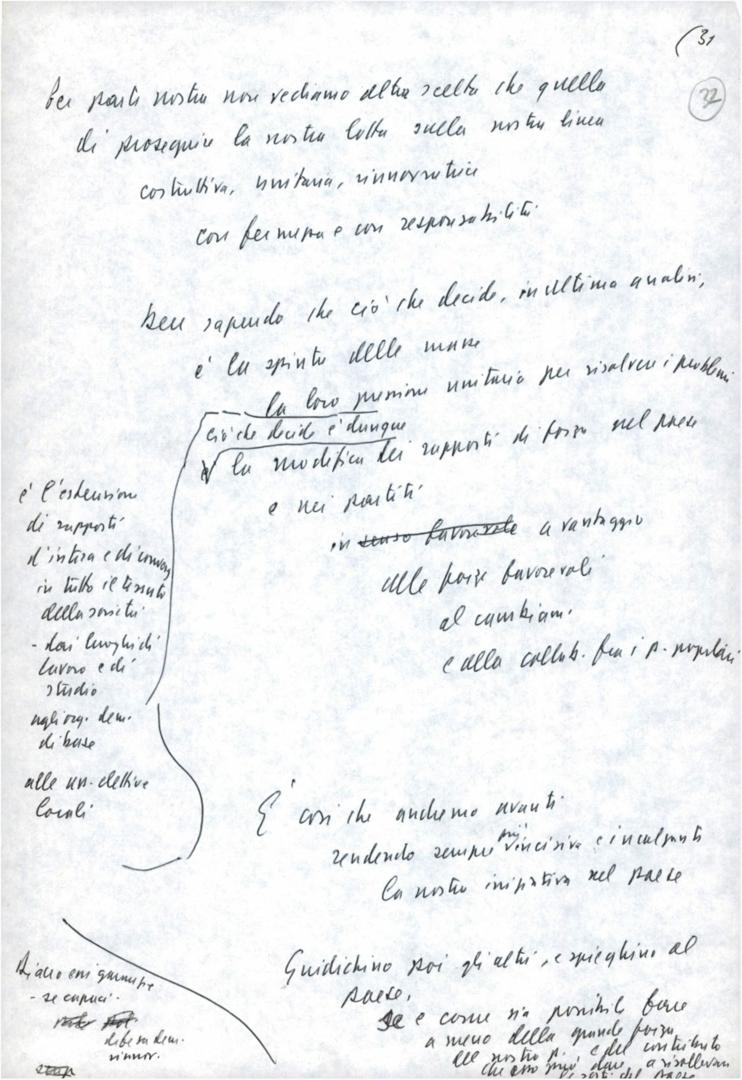 (31
32
Per parte nostra non vediamo altra scelta che quella
di proseguire la nostra lotta sulla nostra linea
costruttiva, unitaria, rinnovatrice
con fermezza e con responsabilità
ben sapendo che ciò che decide, in ultima analisi,
è la spinta delle masse
la loro pressione unitaria per risolvere i problemi
ciò che decide è dunque
la modifica dei rapporti di forza nel paese
e nei partiti
in senso favorevole a vantaggio
alle forze favorevoli
al cambiam.
e alla collab. fra i p. popolari
è l'estensione
di rapporti
d'intesa e di
in tutto il tessuto
della società
- dai luoghi di
lavoro e di
studio
agli org. dem.
di base
alle elettive
locali
È così che andremo avanti
rendendo sempre più incisiva e incalzante
la nostra iniziativa nel paese
Giudichino poi gli altri, e spieghino al
paese,
se e come sia possibile fare
a meno della grande forza
del nostro p. e del contributo
che esso può dare a risollevare
le sorti del paese
- se capaci.
dem.
rinnov.